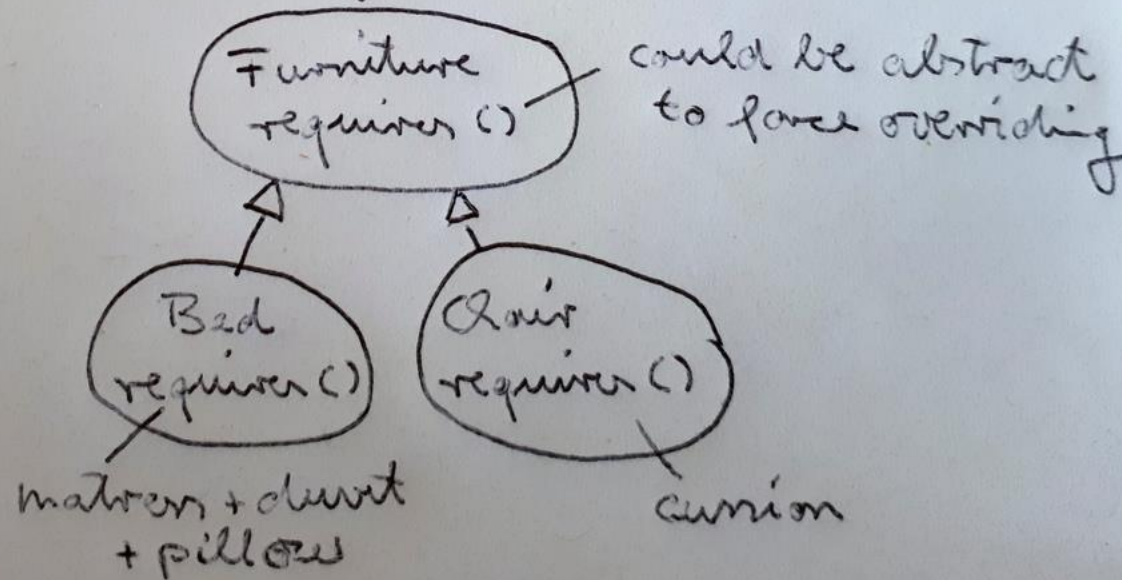 Furniture
requires ()
could be abstract
to force overriding
Bed
requires ()
Chair
requires ()
matress + duvet
+ pillow
cussion